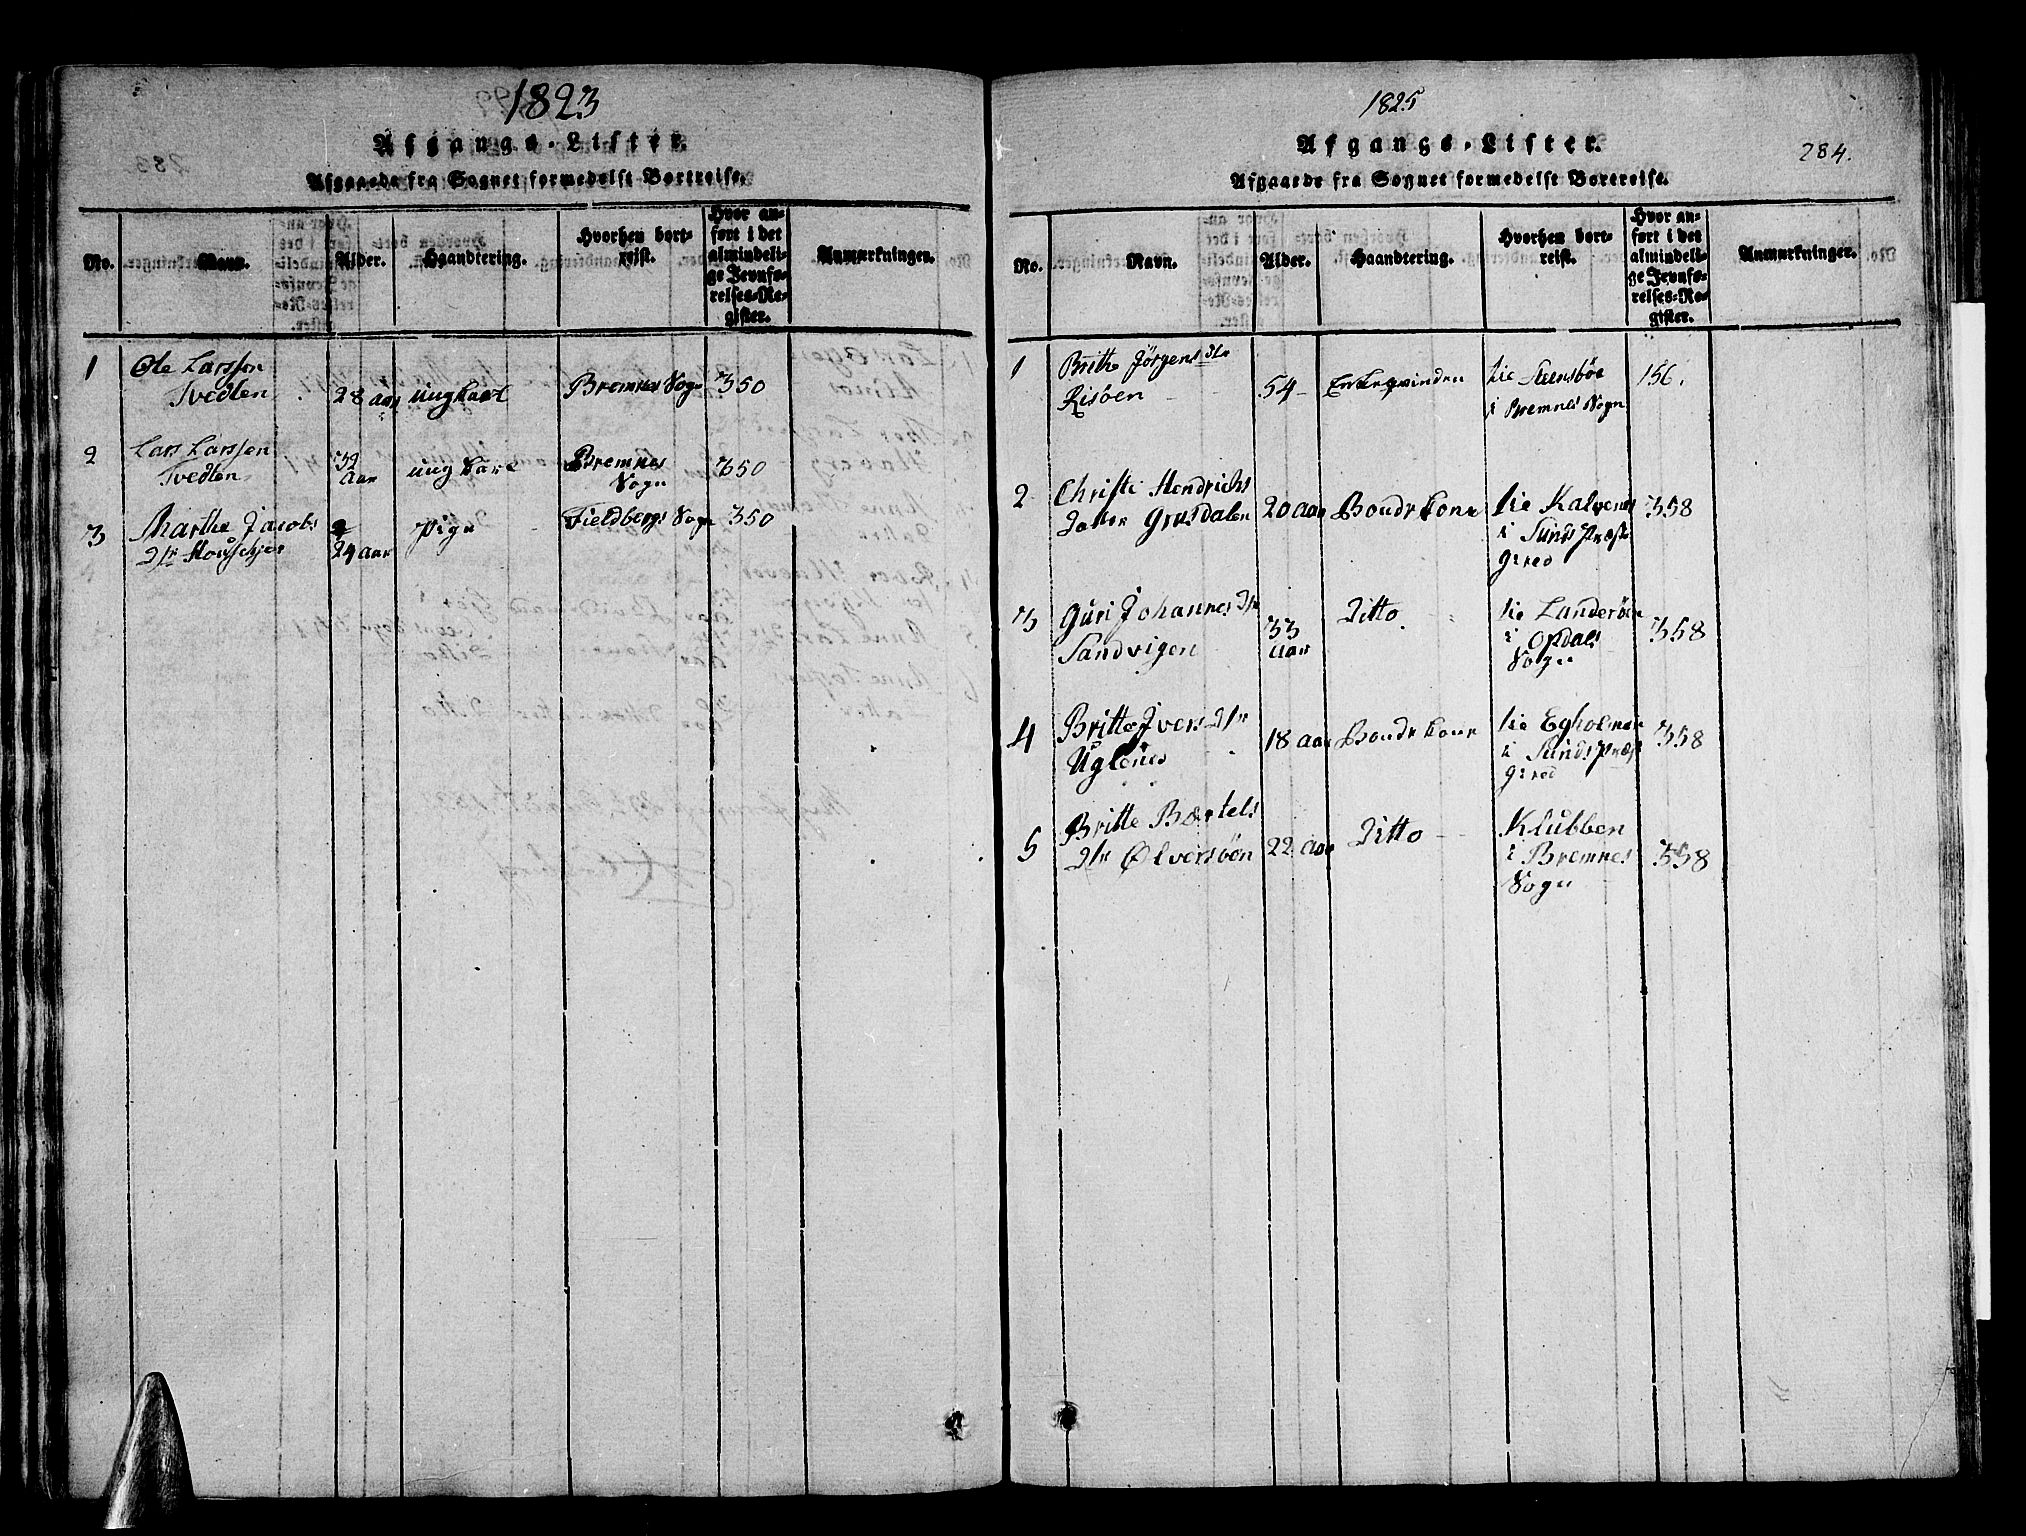 1823
Afgangs-Lister.
Afgaaede fra Sognet formedelst Bortreise.
No.
Navn.
Alder.
Haandtering.
Hvorhen bort-
reist.
Hvor an-
ført i det
almindeli-
ge Jevnfø-
relses-Re-
gister.
Anmærkninger.
1
Ole Larssen
Tvedten
28 aar
ungkarl
Bremnes Sogn
350
2
Lars Larssen
Tvedten
32
Aar
ungkarl
Bremnes
Sogn
350
3
Marthe Jacobs
Dtr
24 aar
Pige
Fieldbergs Sogn
350
1825
Afgangs-Lister.
284.
Afgaaede fra Sognet formedelst Bortreise.
No.
Navn.
Alder.
Haandtering.
Hvorhen bort-
reist.
Hvor an-
ført i det
almindeli-
ge Jevnfø-
relses-Re-
gister.
Anmærkninger.
1
Brithe Jörgens Dtr
Risöen
54
Enkeqvinden
til Steensböe
i Bremnes Sogn
156.
2
Christi Hendrichs
Datter Grusdalen
20 aar
Bondekone
til Kalvenes
i Sunds Præste
gield
358
3
Guri Johannes Dtr
Sandvigen
33
aar
Ditto
til Landeröen
i Opdals
Sogn
358
4
Britte Ivers Dtr
Uglenes
18 aar
Bondekone
til Egholmen
i Sunds Præst
gield
358
5
Britte Bærtels
Dtr Ølversöen
22 aar
Ditto
Klubben
i Bremnes
Sogn
358